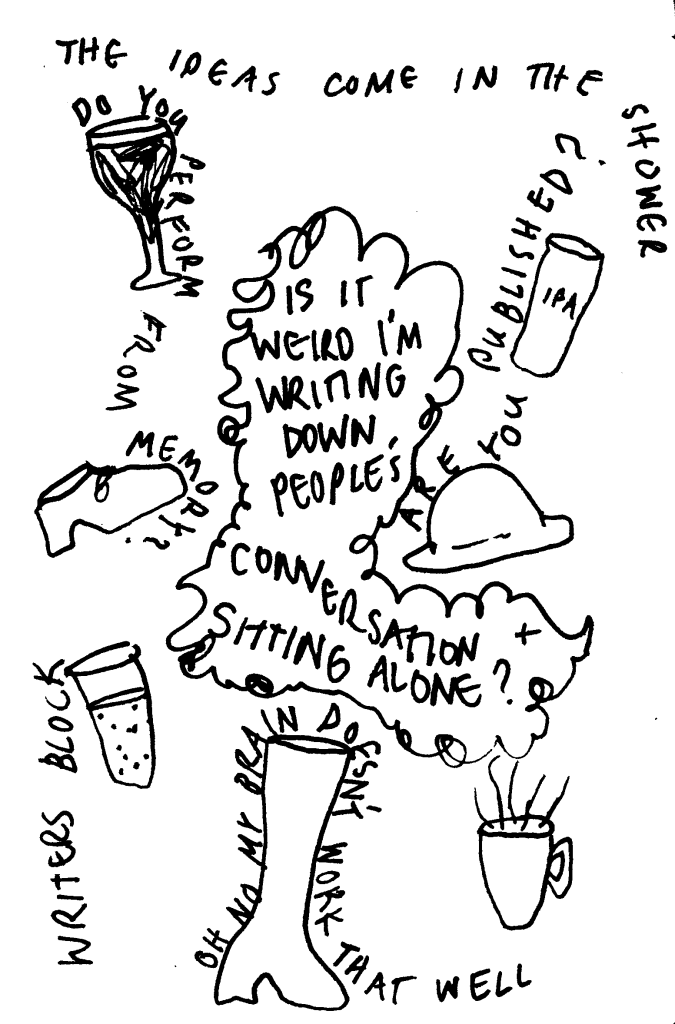 THE IDEAS COME IN THE SHOWER
DO YOU PERFORM FROM MEMORY?
ARE YOU PUBLISHED?
IPA
IS IT
WEIRD I'M
WRITING
DOWN
PEOPLE'S
CONVERSATION +
SITTING ALONE?
WRITERS BLOCK
OH NO MY BRAIN DOESN'T WORK THAT WELL